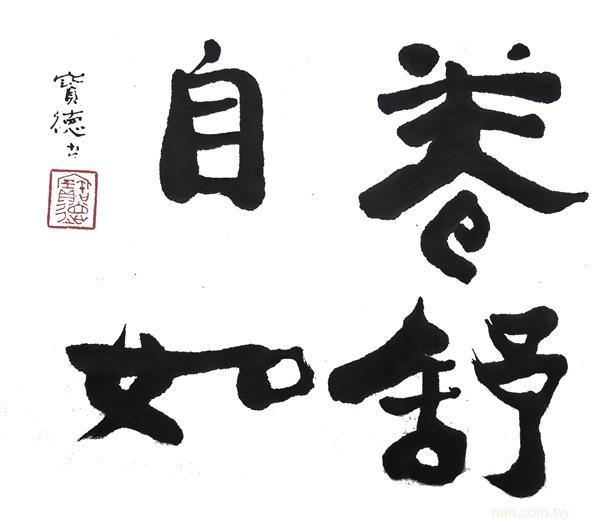 卷舒
自如
寶德書
寶德
nan.com.tw